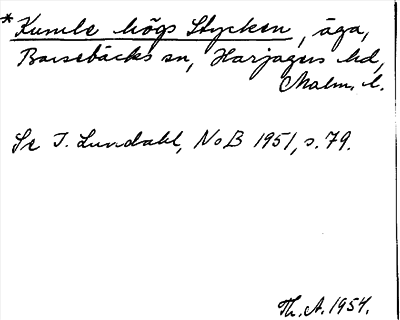 * Kumle högs Stycken, äga,
Barsebäcks sn, Harjagers hd,
Malm. l.
Se I. Lundahl, NoB 1951, s. 79.
Th. A. 1954.